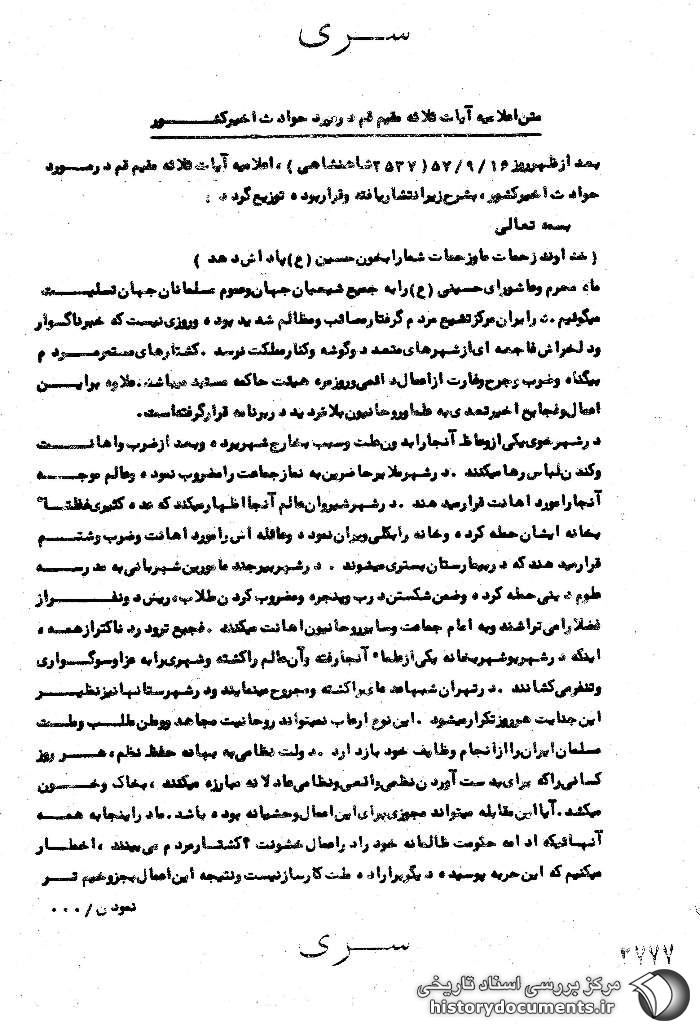 سری
متن اعلامیه آیات ثلاثه مقیم قم در مورد حوادث اخیر کشور
بعد از ظهر روز ۵۷/۹/۱۶ (۲۵۳۷ شاهنشاهی)، اعلامیه آیات ثلاثه مقیم قم در مورد
حوادث اخیر کشور، بشرح زیر انتشار یافته و قرار بوده توزیع گردد :
بسمه تعالی
(خداوند زحمات ما و زحمات شما را بخون حسین (ع) پاداش دهد )
ماه محرم و عاشورای حسینی (ع) را به جمیع شیعیان جهان و عموم مسلمانان جهان تسلیت
میگوئیم. ایران مرکز تشیع مردم گرفتار مصائب و مظالم شدید بوده و روزی نیست که خبر ناگوار
و دلخراش فاجعه ای از شهرهای متعدد و گوشه و کنار مملکت نرسد . کشتارهای مستمر مردم
بیگناه و ضرب و جرح و غارت از اعمال دائمی و روزمره هیئت حاکمه مستبد میباشد. علاوه بر این
اعمال و فجایع اخیر تعدی به علما و روحانیون بلا تردید در برنامه قرار گرفته است.
در شهر خوی یکی از وعاظ آنجا را بدون علت و سبب بخارج شهر برده و بعد از ضرب و اهانت
و کندن لباس رها میکنند . در شهر ملایر حاضرین به نماز جماعت را مضروب نموده و عالم موجه
آنجا را مورد اهانت قرار میدهند . در شهر شیروان عالم آنجا اظهار میکند که عده کثیری غفلتاً
بخانه ایشان حمله کرده و خانه را بکلی ویران نموده و عائله اش را مورد اهانت و ضرب و شتم
قرار میدهند که در بیمارستان بستری میشوند . در شهر بیرجند مامورین شهربانی به مدرسه
علوم دینی حمله کرده و ضمن شکستن درب و پنجره و مضروب کردن طلاب، ریش دو نفر از
فضلا را می تراشند و به امام جماعت و سایر روحانیون اهانت میکنند . فجیع تر و دردناکتر از همه ،
اینکه در شهر بوشهر بخانه یکی از علماء آنجا رفته و آن عالم را کشته و شهری را به عزا و سوگواری
و تنفر می کشانند . در تهران شبها عده ای را کشته و مجروح مینمایند و در شهرستانها نیز نظیر
این جنایت هر روز تکرار میشود . این نوع ارعاب نمیتواند روحانیت مجاهد و وطن طلب و ملت
مسلمان ایران را از انجام وظایف خود باز دارد . دولت نظامی به بهانه حفظ نظم، هر روز
کسانی را که برای بدست آوردن نظمی واقعی و نظامی عادلانه مبارزه میکنند ، بخاک و خون
میکشد. آیا این مقابله میتواند مجوزی برای این اعمال وحشیانه بوده باشد. ما در اینجا به همه
آنهائیکه ادامه حکومت ظالمانه خود را در اعمال خشونت و کشتار مردم می بینند ، اخطار
میکنیم که این حربه پوسیده دیگر بر اراده ملت کارساز نیست و نتیجه این اعمال بجز وخیم تر
نمودن / ۰۰۰
سری
۳۷۷۷
مرکز بررسی اسناد تاریخی
historydocuments.ir